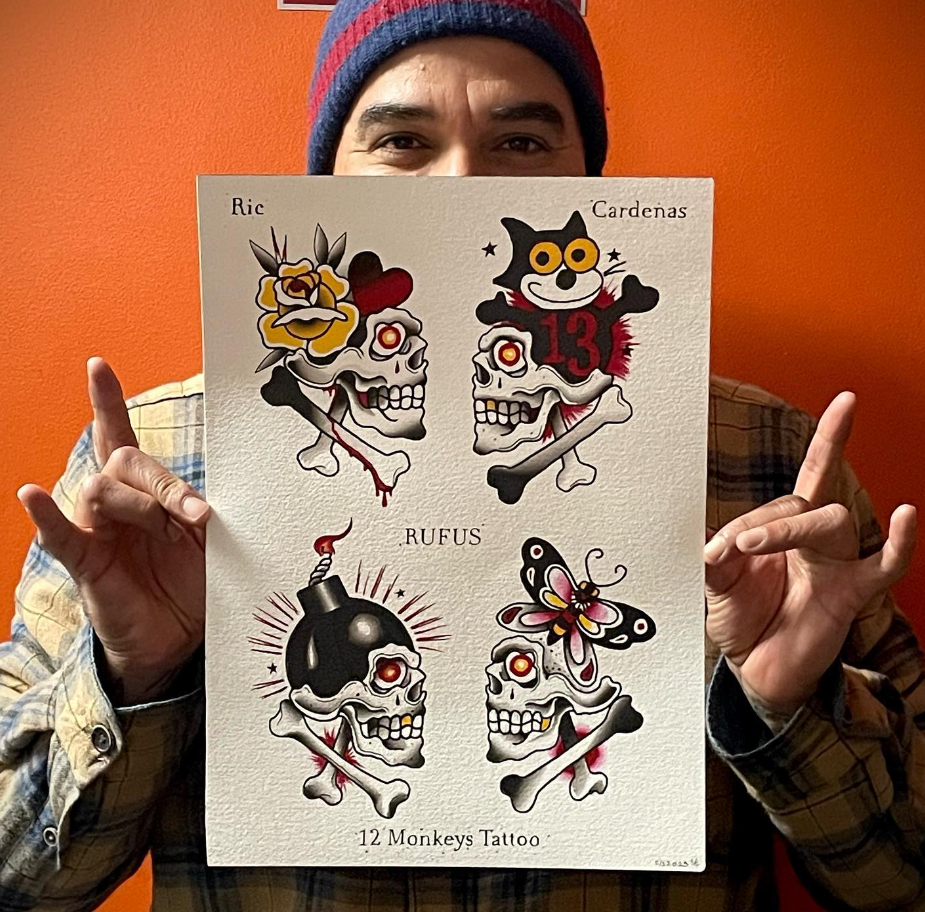 Ric
Cardenas
13
RUFUS
12 Monkeys Tattoo